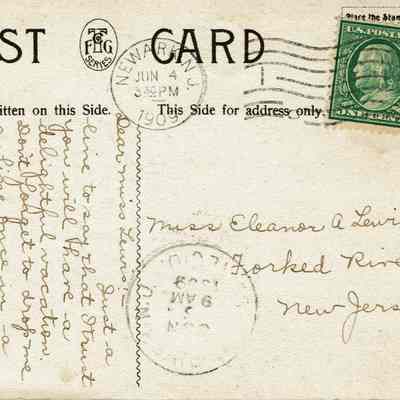 ST CARD
TFG
SERIES
Place the Stam
U.S. POSTA
NEWARK, N.J.
JUN 4
3 30 PM
1909
itten on this Side.
This Side for address only.
Dear Miss Lewis:-
Just a
line to say that I trust
you will have a
delightful vacation.
Don't forget to drop me
a line once in a
Miss Eleanor A Lewi
Forked Rive
New Jers
JUN
9 AM
1909